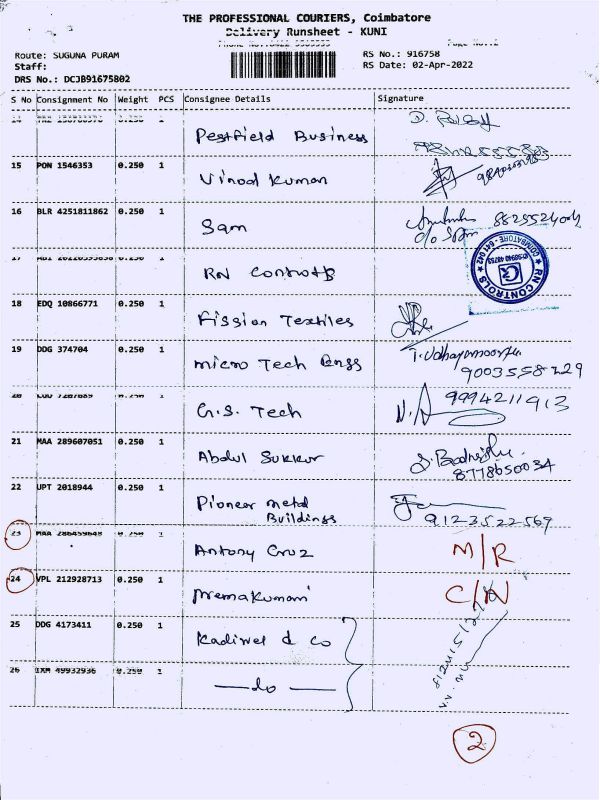 THE PROFESSIONAL COURIERS, Coimbatore
Delivery Runsheet - KUNI
Route: SUGUNA PURAM
RS No.: 916758
Staff:
RS Date: 02-Apr-2022
DRS No.: DCJB91675802
S No Consignment No Weight PCS Consignee Details Signature
14 0.250 1 Pestfield Business
15 PON 1546353 0.250 1 Vinod Kumar
16 BLR 4251811862 0.250 1 Sam
c/o Sam
17 0.250 1 RN Controls
RN CONTROLS
COIMBATORE - 641 042
18 EDQ 10866771 0.250 1 Fission Textiles
19 DDG 374704 0.250 1 Micro Tech Engs
9003558229
20 0.250 1 G.S. Tech 9994211913
21 MAA 289607051 0.250 1 Abdul Sukkur
8778650034
22 UPT 2018944 0.250 1 Pioneer Metal
Buildings 9123522569
23 MAA 286459648 0.250 1 Antony Cruz M/R
24 VPL 212928713 0.250 1 Premakumari C/N
25 DDG 4173411 0.250 1 Kadirvel & Co
26 IXM 49932936 0.250 1 — do —
2